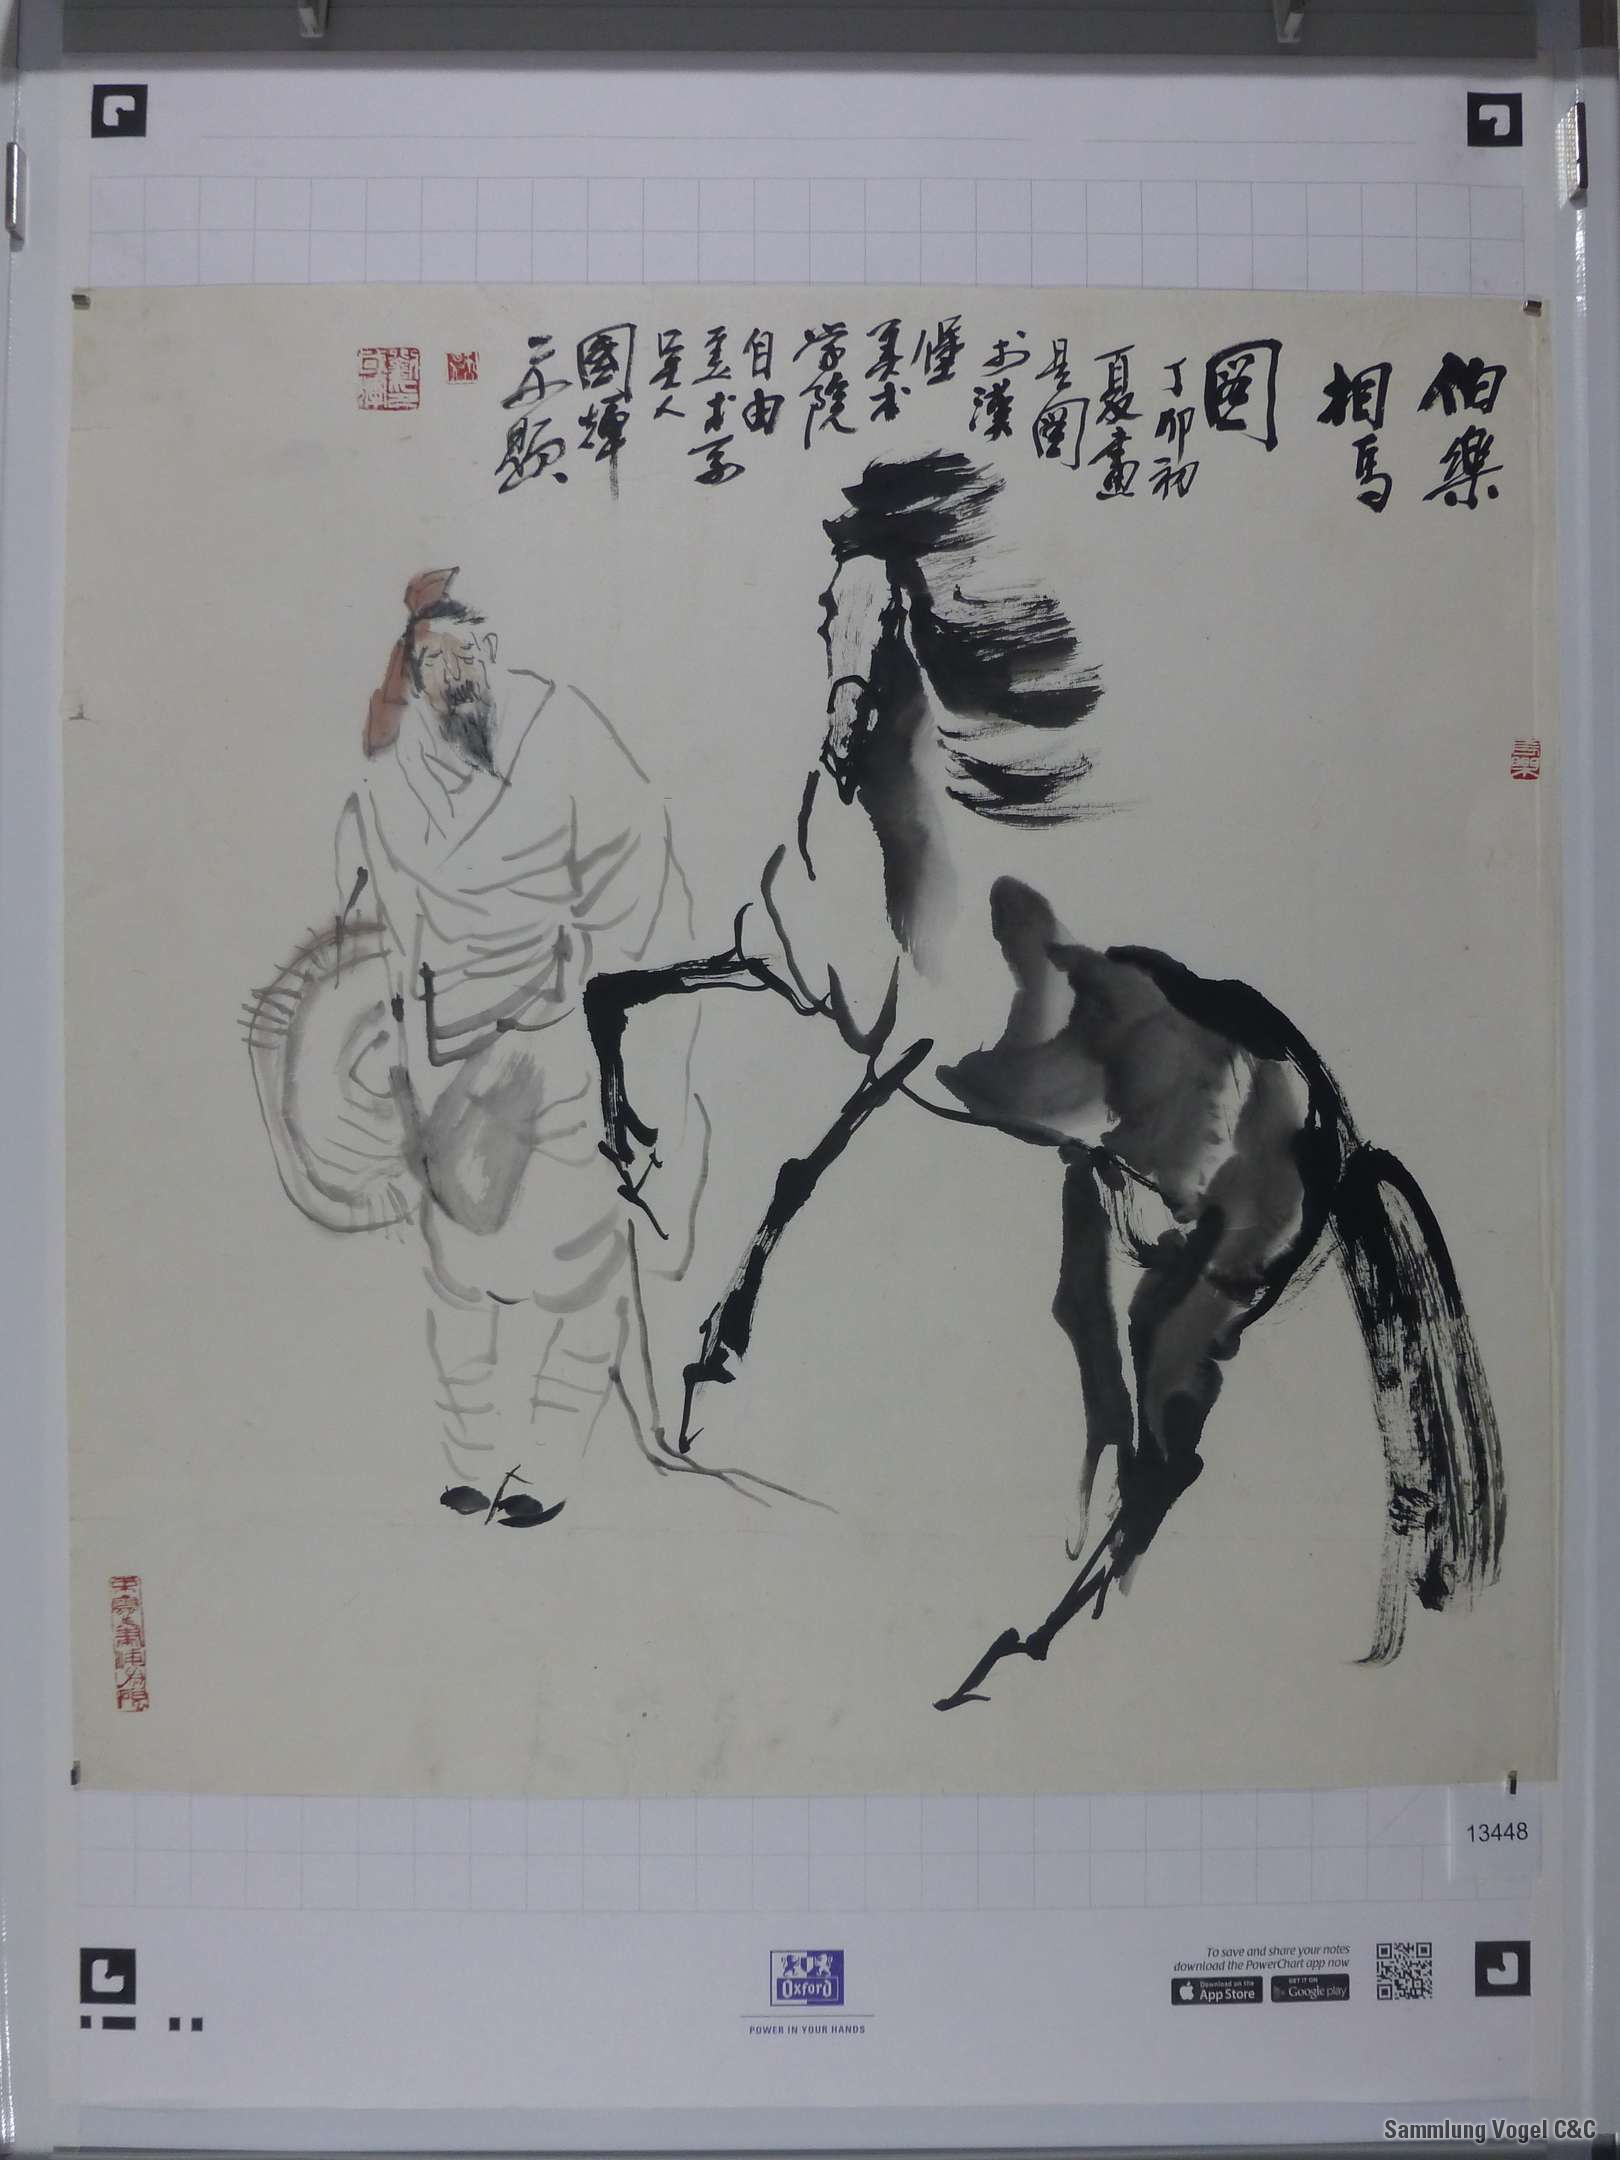 伯樂
相馬
圖
丁卯初
夏畫
是圖
於漢
堡
美术
学院
自由
美术系
國輝
13448
To save and share your notes
download the PowerChart app now
Download on the
App Store
GET IT ON
Google play
Oxford
POWER IN YOUR HANDS
Sammlung Vogel C&C